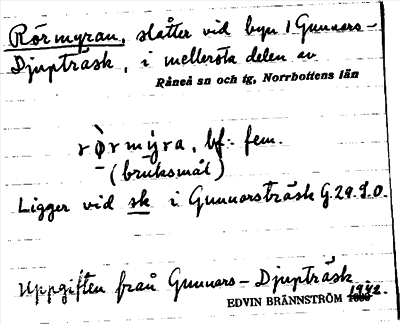 Rörmyran, slåtter vid byn 1 Gunnars-
Djupträsk, i mellersta delen av
Råneå sn och tg, Norrbottens län
rö̀rmýra, bf: fem.
(bruksmål)
Ligger vid sk i Gunnarsträsk G.29.9.0.
Uppgiften från Gunnars-Djupträsk
1942.
EDVIN BRÄNNSTRÖM